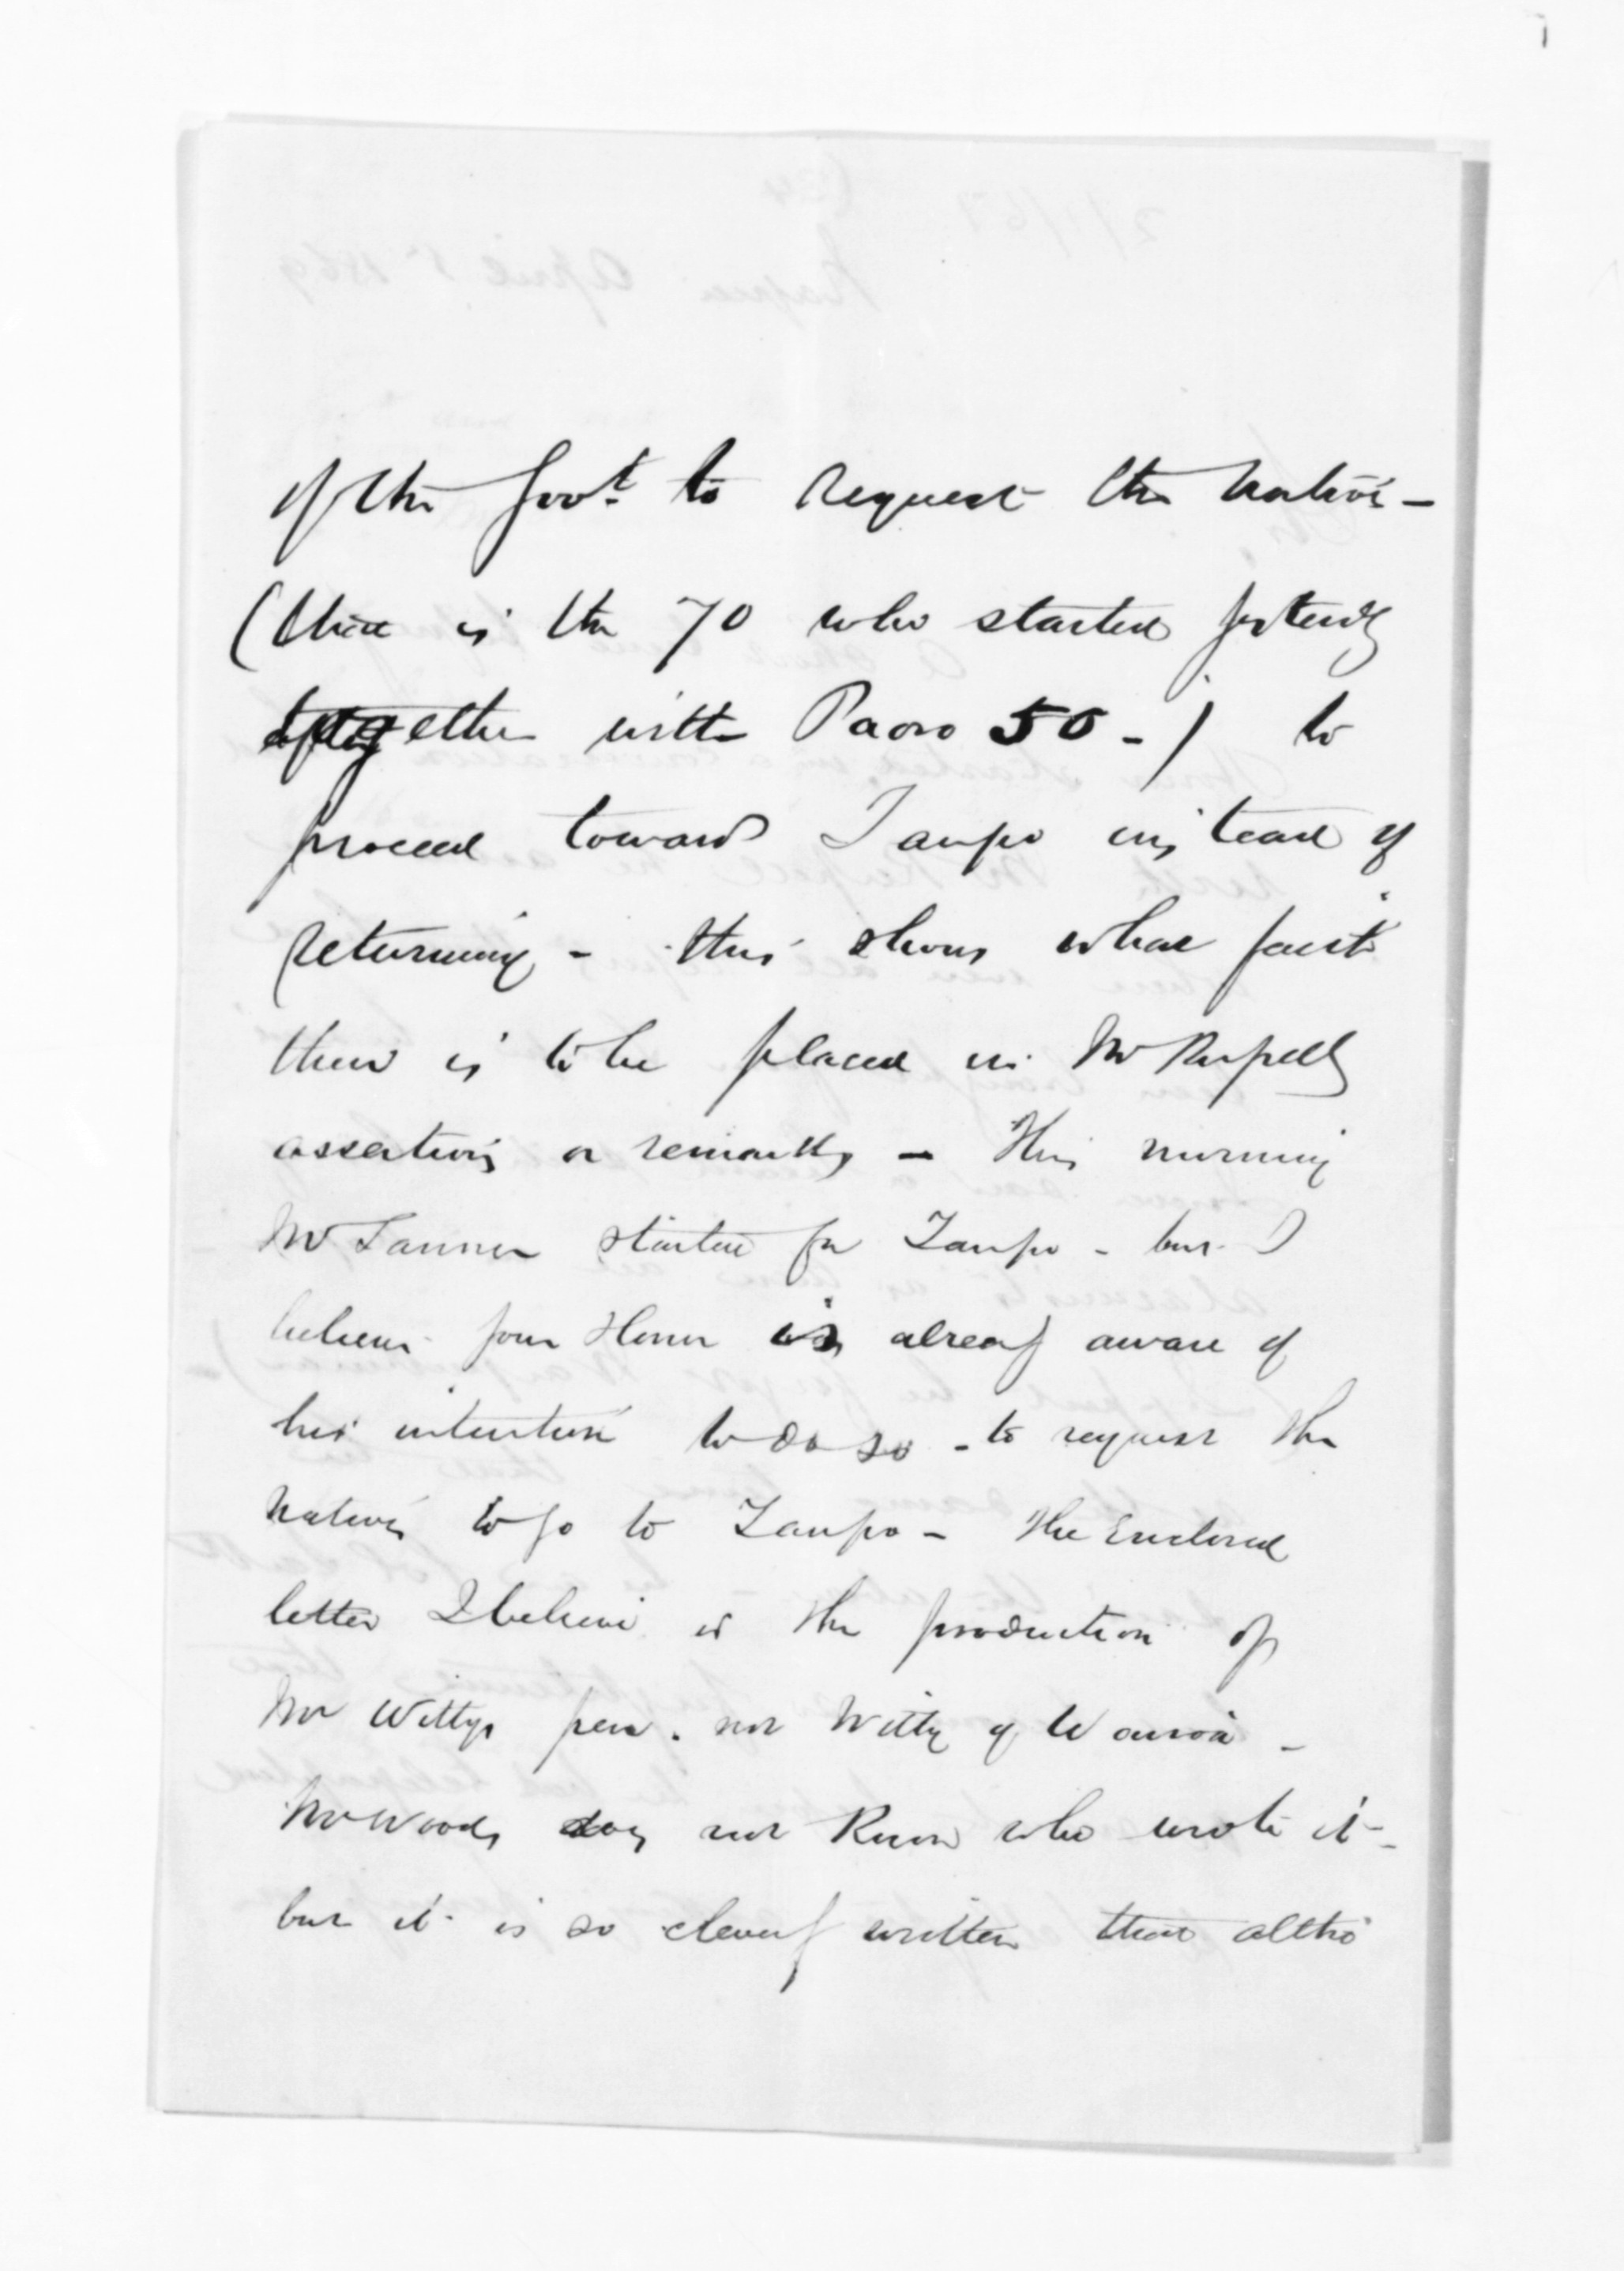 of the Govt to request the natives -
(that is the 70 who started yesterday
together with Paoro 50 - ) to
proceed toward Taupo instead of
returning - this shows what faith
there is to be placed in Mr Russells
assertions or remarks - This morning
Mr Tanner started for Taupo - but I
believe your Honor is already aware of
his intention to do so - to request the
natives to go to Taupo - The Enclosed
letter I believe is the production of
Mr Wittys pen. not Witty of Wairoa -
Mr Woods does not know who wrote it -
but it is so cleverly written that altho'